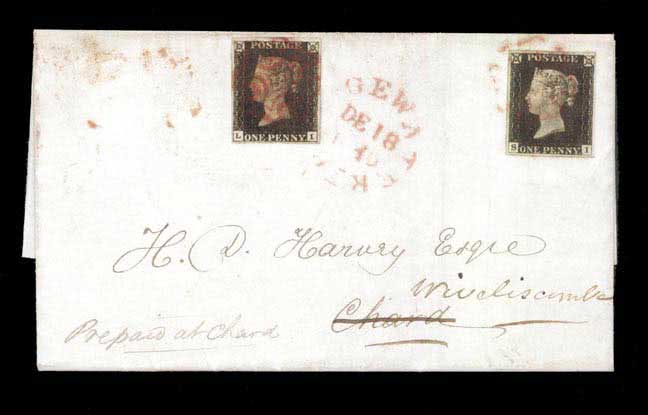 POSTAGE
L I
ONE PENNY
DE 18
POSTAGE
S I
ONE PENNY
H. D. Harvey Esqre
Wiveliscombe
Chard
Prepaid at Chard